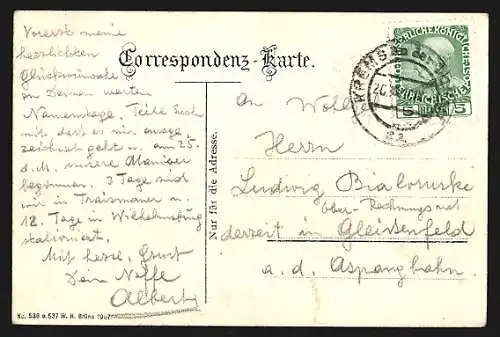 Vorerst meine
herzlichsten
Glückwünsche
zu Deinem werten
Namenstage. Teile Euch
mit dass es mir ausge
zeichnet geht u. am 25.
d. M. unsere Manöver
beginnen. 3 Tage sind
wir in Traismauer u.
12 Tage in Wilhelmsburg
stationiert.
Mit herzl. Gruss
Dein Neffe
Albert
Correspondenz-Karte.
Nur für die Adresse.
An Wohl
Herrn
Ludwig Bialoruske
Ober-Rechnungsrat
derzeit in Gleissenfeld
a. d. Aspangbahn.
KREMS
5 5
No. 536 u. 537 W. H. Brünn 1907